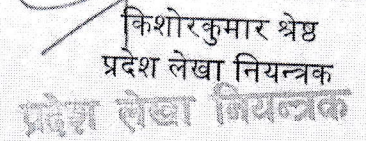 किशोरकुमार श्रेष्ठ
प्रदेश लेखा नियन्त्रक
प्रदेश लेखा नियन्त्रक